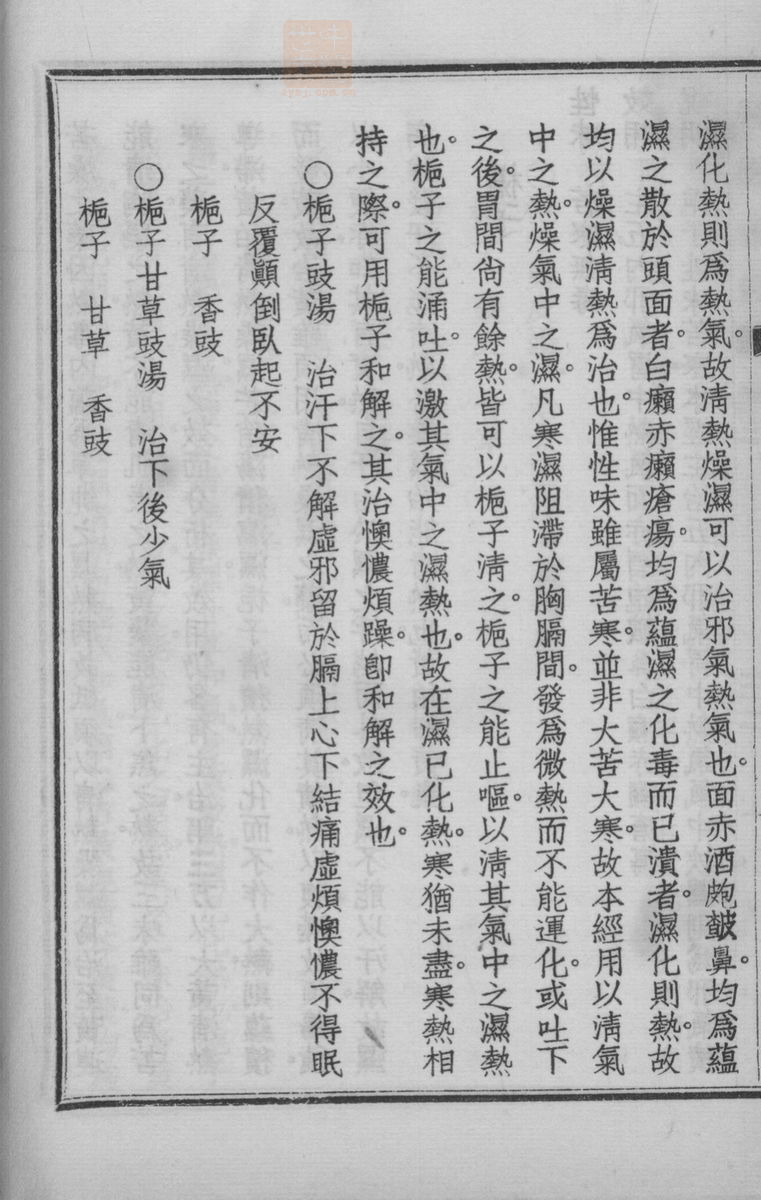 濕化熱則爲熱氣。故淸熱燥濕可以治邪氣熱氣也。面赤酒皰皶鼻。均爲蘊
濕之散於頭面者。白癩赤癩瘡瘍。均爲蘊濕之化毒而已潰者。濕化則熱。故
均以燥濕淸熱爲治也。惟性味雖屬苦寒。並非大苦大寒。故本經用以淸氣
中之熱。燥氣中之濕。凡寒濕阻滯於胸膈間。發爲微熱而不能運化。或吐下
之後。胃間尙有餘熱。皆可以梔子淸之。梔子之能止嘔。以淸其氣中之濕熱
也。梔子之能涌吐。以激其氣中之濕熱也。故在濕已化熱。寒猶未盡。寒熱相
持之際。可用梔子和解之。其治懊憹煩躁。卽和解之效也。
〇梔子豉湯　治汗下不解虛邪留於膈上心下結痛虛煩懊憹不得眠
反覆顚倒臥起不安
梔子　香豉
〇梔子甘草豉湯　治下後少氣
梔子　甘草　香豉